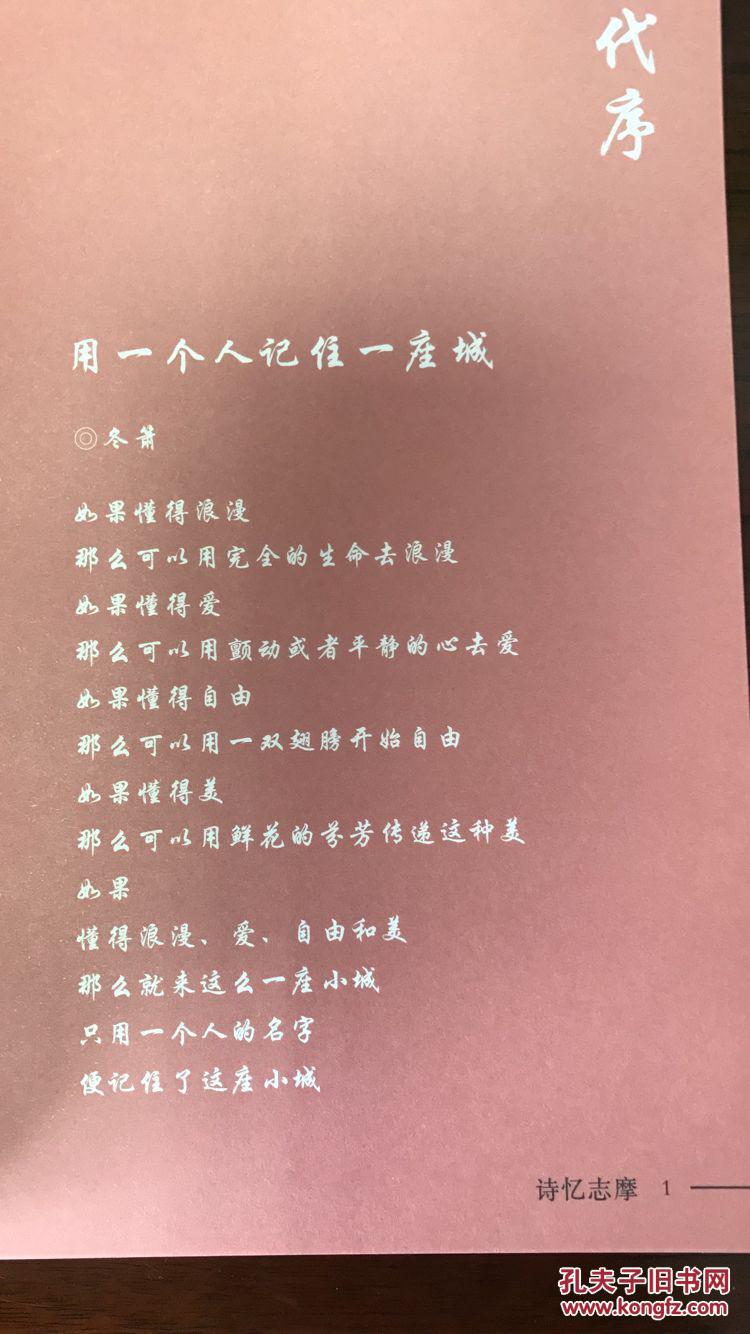 代序
用一个人记住一座城
◎冬箫
如果懂得浪漫
那么可以用完全的生命去浪漫
如果懂得爱
那么可以用颤动或者平静的心去爱
如果懂得自由
那么可以用一双翅膀开始自由
如果懂得美
那么可以用鲜花的芬芳传递这种美
如果
懂得浪漫、爱、自由和美
那么就来这么一座小城
只用一个人的名字
便记住了这座小城
诗忆志摩 1
孔夫子旧书网
www.kongfz.com